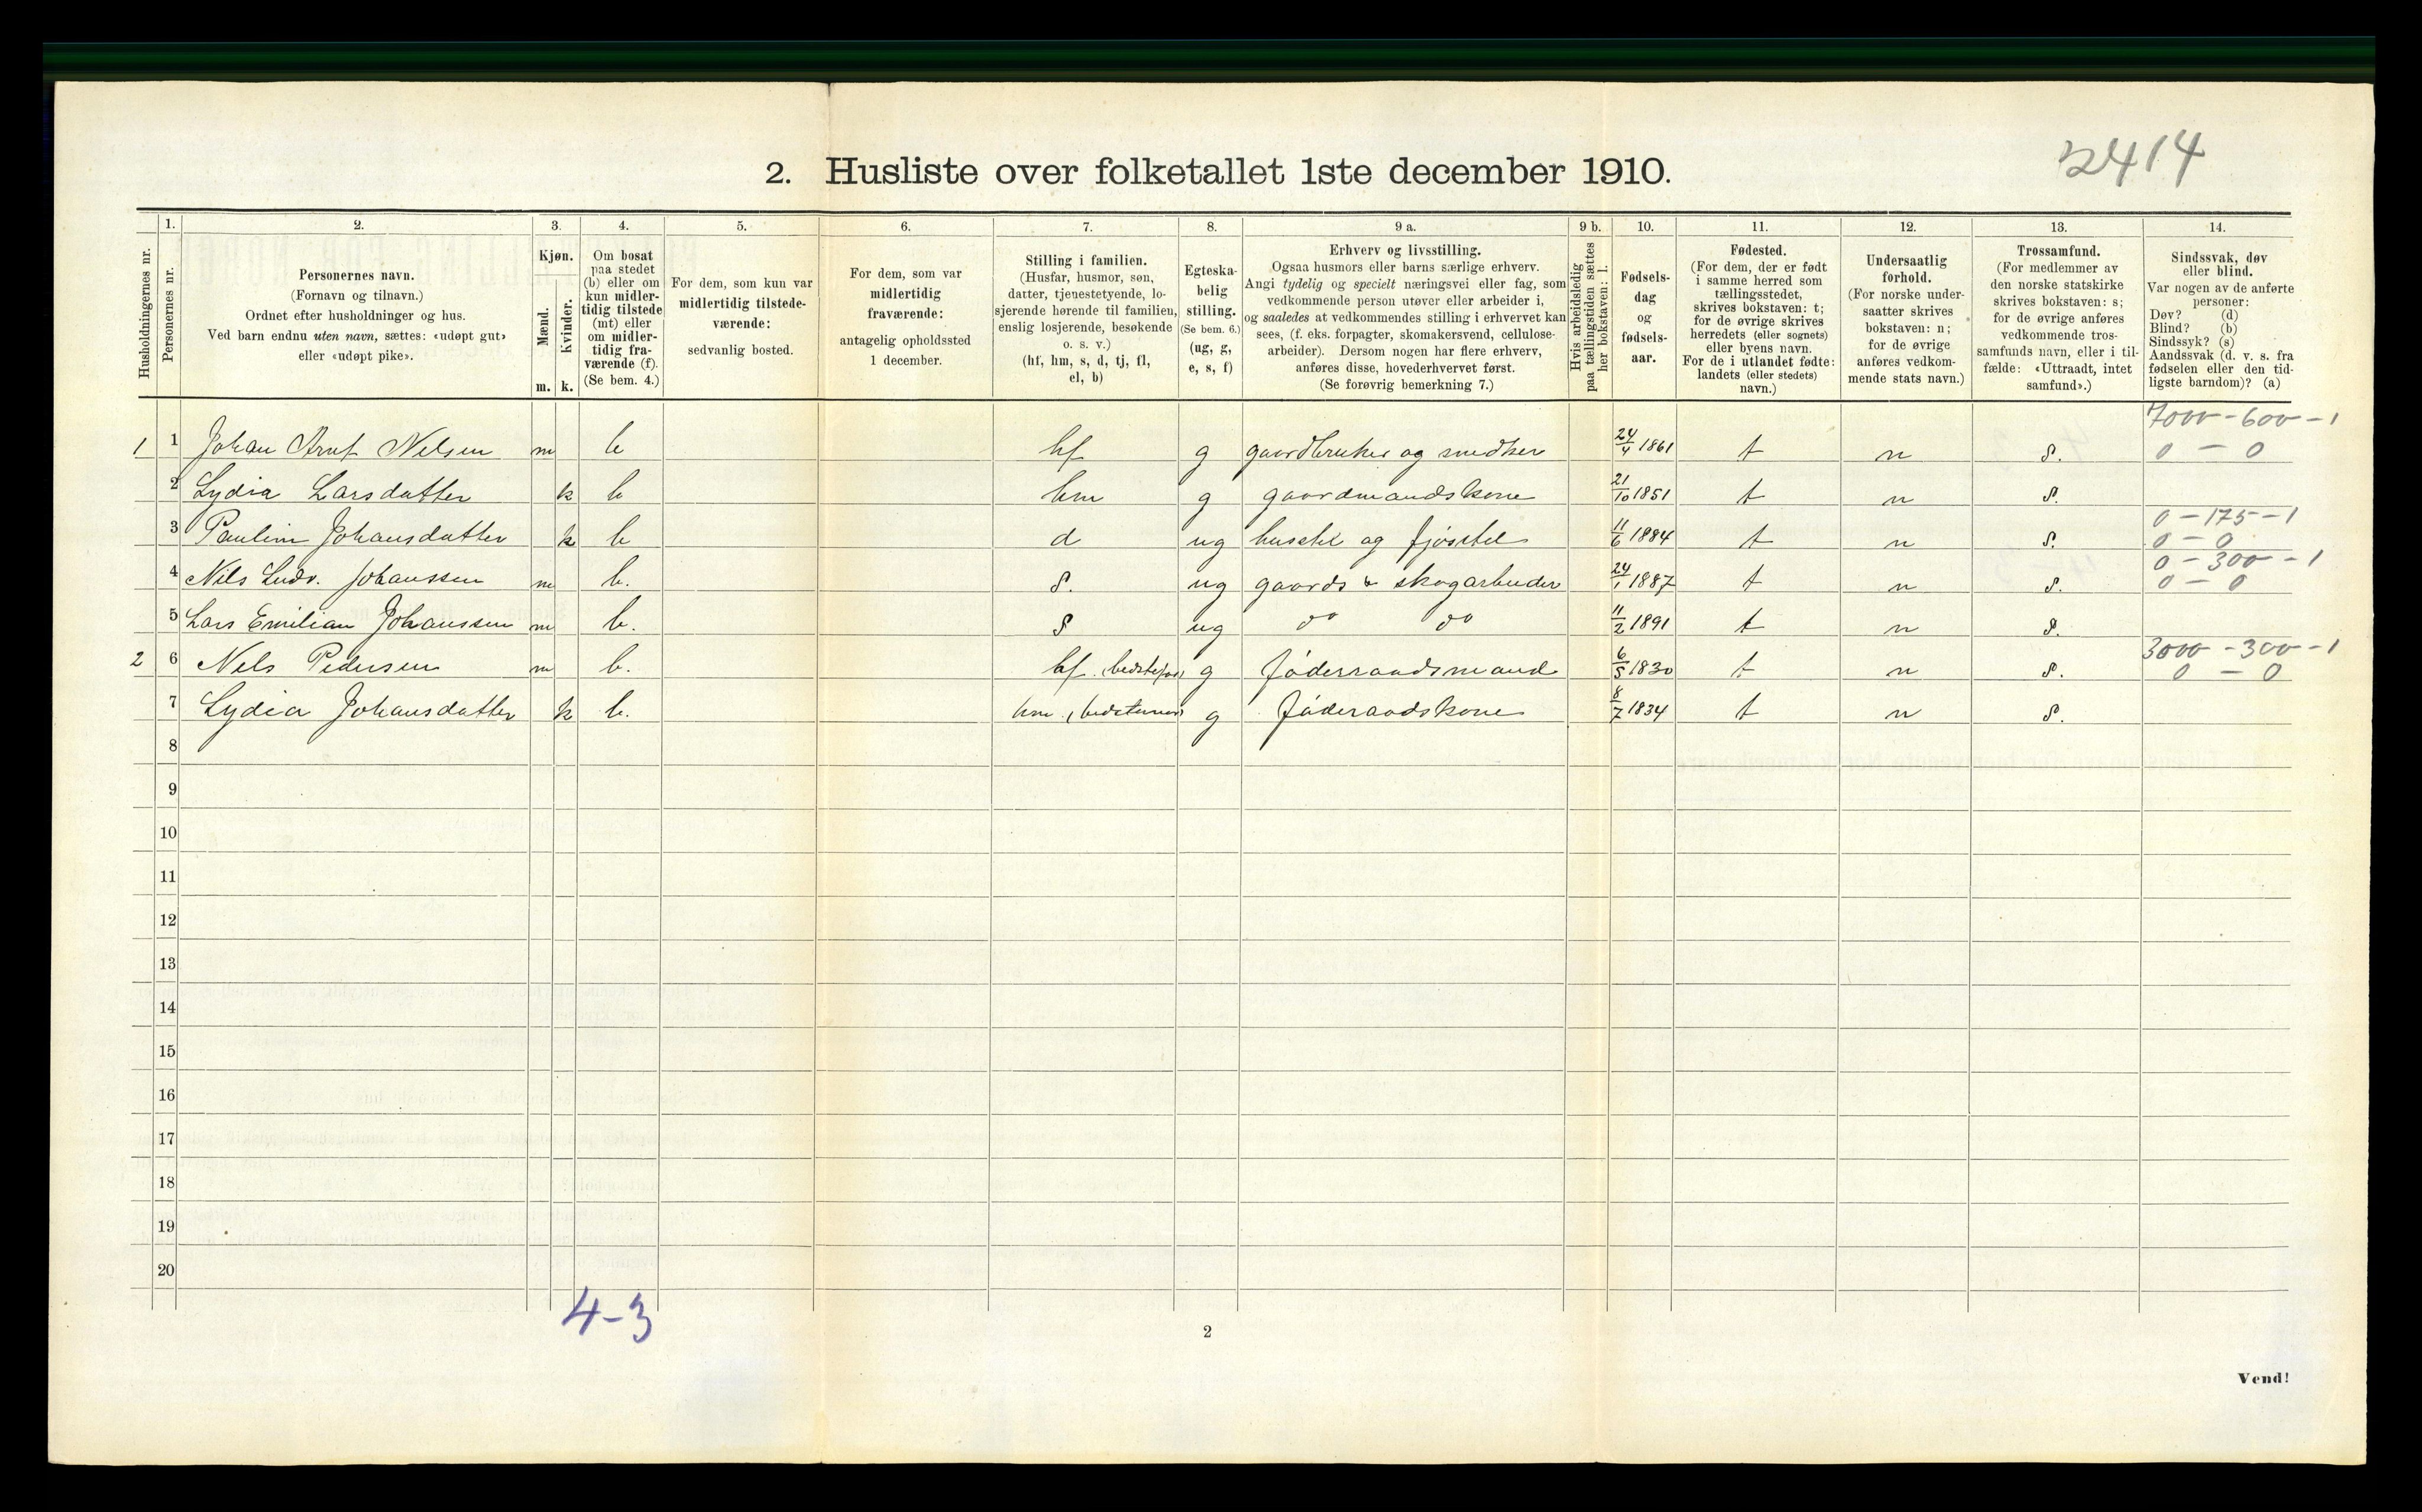 2414
2. Husliste over folketallet 1ste december 1910.
Husholdningernes nr.
1. Personernes nr.
2. Personernes navn.
(Fornavn og tilnavn.)
Ordnet efter husholdninger og hus.
Ved barn endnu uten navn, sættes: «udøpt gut»
eller «udøpt pike».
3. Kjøn.
Mænd. m.
Kvinder. k.
4. Om bosat
paa stedet
(b) eller om
kun midler-
tidig tilstede
(mt) eller
om midler-
tidig fra-
værende (f).
(Se bem. 4.)
5. For dem, som kun var
midlertidig tilstede-
værende:
sedvanlig bosted.
6. For dem, som var
midlertidig
fraværende:
antagelig opholdssted
1 december.
7. Stilling i familien.
(Husfar, husmor, søn,
datter, tjenestetyende, lo-
sjerende hørende til familien,
enslig losjerende, besøkende
o. s. v.)
(hf, hm, s, d, tj, fl,
el, b)
8. Egteska-
belig
stilling.
(Se bem. 6.)
(ug, g,
e, s, f)
9 a. Erhverv og livsstilling.
Ogsaa husmors eller barns særlige erhverv.
Angi tydelig og specielt næringsvei eller fag, som
vedkommende person utøver eller arbeider i,
og saaledes at vedkommendes stilling i erhvervet kan
sees, (f. eks. forpagter, skomakersvend, cellulose-
arbeider). Dersom nogen har flere erhverv,
anføres disse, hovederhvervet først.
(Se forøvrig bemerkning 7.)
9 b. Hvis arbeidsledig
paa tællingstiden sættes
her bokstaven: l.
10. Fødsels-
dag
og
fødsels-
aar.
11. Fødested.
(For dem, der er født
i samme herred som
tællingsstedet,
skrives bokstaven: t;
for de øvrige skrives
herredets (eller sognets)
eller byens navn.
For de i utlandet fødte:
landets (eller stedets)
navn.)
12. Undersaatlig
forhold.
(For norske under-
saatter skrives
bokstaven: n;
for de øvrige
anføres vedkom-
mende stats navn.)
13. Trossamfund.
(For medlemmer av
den norske statskirke
skrives bokstaven: s;
for de øvrige anføres
vedkommende tros-
samfunds navn, eller i til-
fælde: «Uttraadt, intet
samfund».)
14. Sindssvak, døv
eller blind.
Var nogen av de anførte
personer:
Døv? (d)
Blind? (b)
Sindssyk? (s)
Aandssvak (d. v. s. fra
fødselen eller den tid-
ligste barndom)? (a)
7000 - 600 - 1
1 1 Johan Arnt Nelsen m b hf g gaardbruker og snedker 24/4 1861 t n s. 0 - 0
2 Lydia Larsdatter k b hm g gaardmandskone 21/10 1851 t n s.
0 - 175 - 1
3 Johansdatter k b d ug og 11/6 1884 t n s. 0 - 0
0 - 300 - 1
4 Nils Ludv. Johanssen m b. s. ug gaards & skogarbeider 24/1 1887 t n s. 0 - 0
5 Lars Emilian Johanssen m b. s ug do do 11/2 1891 t n s.
3000 - 300 - 1
2 6 Nels Pedersen m b. hf. (bedstefar) g føderaadsmand 6/5 1830 t n s. 0 - 0
7 Lydia Johansdatter k b. hm. (bedstemor) g føderaadskone 8/7 1834 t n s.
8
9
10
11
12
13
14
15
16
17
18
19
20
4-3
2
Vend!